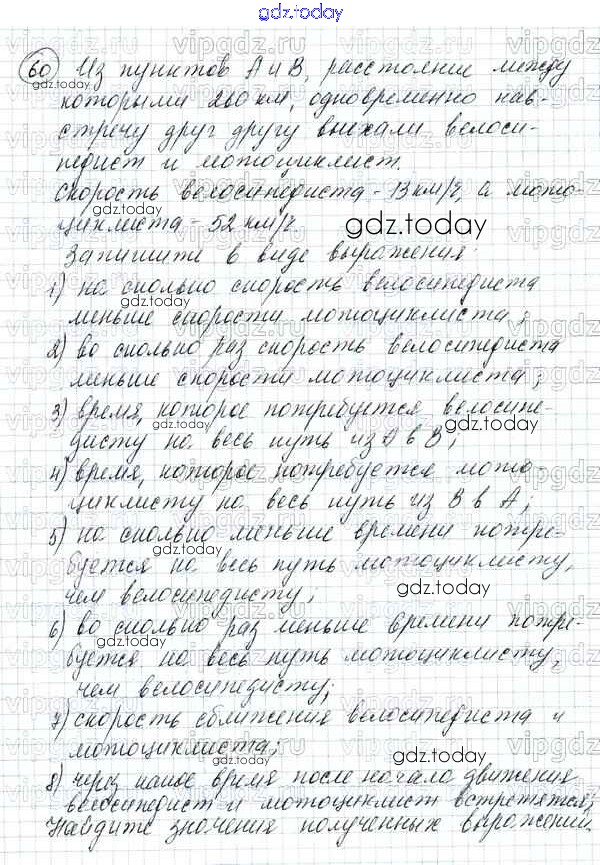 gdz.today
60 Из пунктов А и В, расстояние между
которыми 260 км, одновременно нав-
стречу друг другу выехали велоси-
педист и мотоциклист.
Скорость велосипедиста - 13 км/ч, а мото-
циклиста - 52 км/ч.
gdz.today
Запишите в виде выражения:
1) на сколько скорость велосипедиста
gdz.today
меньше скорости мотоциклиста;
2) во сколько раз скорость велосипедиста
gdz.today
меньше скорости мотоциклиста;
3) время, которое потребуется велосипе-
gdz.today
дисту на весь путь из А в В;
4) время, которое потребуется мото-
gdz.today
циклисту на весь путь из В в А;
5) на сколько меньше времени потре-
gdz.today
буется на весь путь мотоциклисту,
чем велосипедисту;
gdz.today
6) во сколько раз меньше времени потре-
gdz.today
буется на весь путь мотоциклисту,
чем велосипедисту;
7) скорость сближения велосипедиста и
мотоциклиста;
gdz.today
8) через какое время после начала движения
gdz.today
велосипедист и мотоциклист встретятся;
Найдите значения полученных выражений.
gdz.today